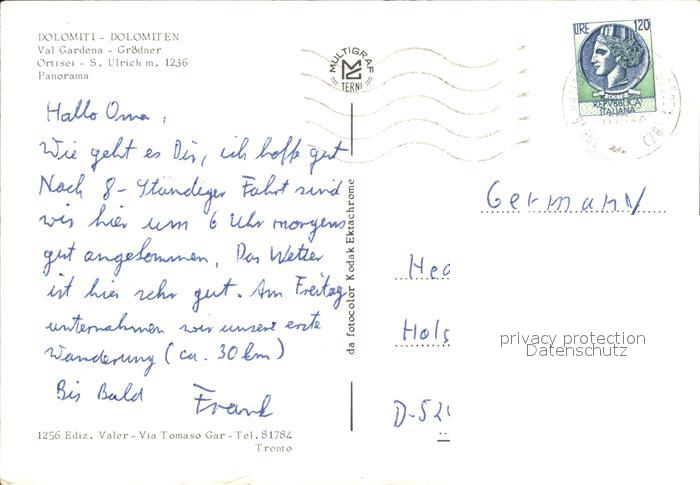 DOLOMITI - DOLOMITEN
Val Gardena - Grödner
Ortisei - S. Ulrich m. 1236
Panorama
Hallo Oma,
Wie geht es Dir, ich hoffe gut
Nach 8-Stündiger Fahrt sind
wir hier um 6 Uhr morgens
gut angekommen. Das Wetter
ist hier sehr gut. Am Freitag
unternahmen wir unsere erste
Wanderung (ca. 30 km)
Bis Bald Frank
1256 Ediz. Valer - Via Tomaso Gar - Tel. 81784
Trento
da fotocolor Kodak Ektachrome
MULTIGRAF
TERNI
LIRE 120
REPVBBLICA
ITALIANA
Germany
Hec
Hols
D-52
privacy protection
Datenschutz